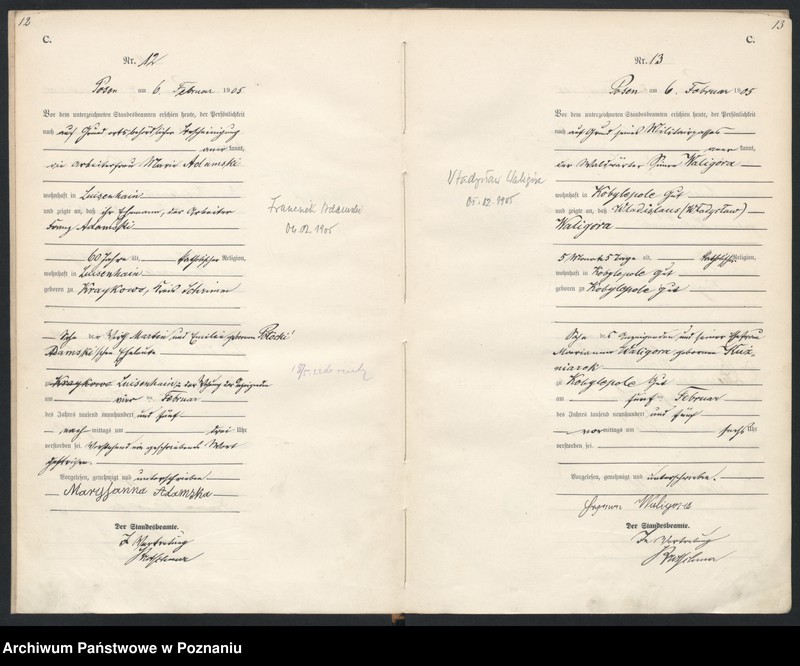 12
C.
Nr. 12
Posen am 6. Februar 1905
Vor dem unterzeichneten Standesbeamten erschien heute, der Persönlichkeit
nach auf Grund ortsbehördlicher Bescheinigung
kannt,
die Arbeiterfrau Marie Adamski
wohnhaft in Luisenhain
und zeigte an, daß ihr Ehemann, der Arbeiter
Franz Adamski
60 Jahre alt, katholischer Religion,
wohnhaft in Luisenhain
geboren zu Kraykowo, Kreis Schrimm
Sohn der Martin und Emilie geborene
Adamski'schen Eheleute
Kraykowo Luisenhain, in der Wohnung der Anzeigende
am vier ten Februar
des Jahres tausend neunhundert und fünf
nach mittags um drei Uhr
verstorben sei. Vorstehend ein geschriebenes Wort
gestrichen.
Vorgelesen, genehmigt und unterschrieben
Maryjanna Adamzka
Der Standesbeamte.
In Vertretung
Franciszek Adamski
04.02.1905
13
C.
Nr. 13
Posen am 6. Februar 1905
Vor dem unterzeichneten Standesbeamten erschien heute, der Persönlichkeit
nach auf Grund seines Militairpasses
kannt,
der Waldwärter Waligóra
wohnhaft in Kobylepole Gut
und zeigte an, daß Wladislaus (Władysław)
Waligóra
5 Monate 5 Tage alt, katholischer Religion,
wohnhaft in Kobylepole Gut
geboren zu Kobylepole Gut
Sohn des Anzeigenden und seiner Ehefrau
Marianna Waligora geborenen Kuź-
niarek
zu Kobylepole Gut
am fünf ten Februar
des Jahres tausend neunhundert und fünf
vor mittags um sechs Uhr
verstorben sei.
Vorgelesen, genehmigt und unterschrieben.
Waligora
Der Standesbeamte.
In Vertretung
Władysław Waligóra
05.02.1905
Archiwum Państwowe w Poznaniu